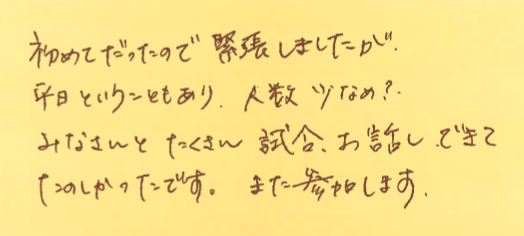 初めてだったので 緊張しましたが、
平日ということもあり、人数少なめ?
みなさんと たくさん 試合、お話し できて
たのしかったです。 また参加します。